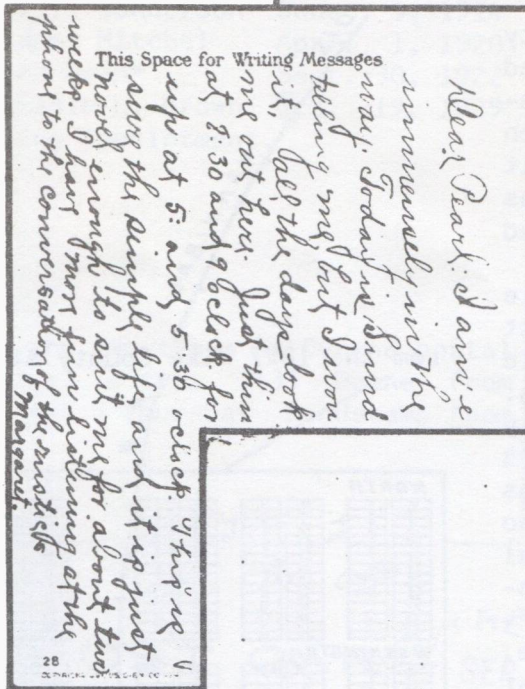 This Space for Writing Messages
Dear Pearl I am e
immensely in the
way. Today is Sund
telling me, but I wou
it. All the days look
me out here. Just thin
at 7:30 and 9 oclock for
up at 5: and 5:30 oclock. This is
sure the simple life, and it is just
novel enough to suit me for about two
weeks. I have more fun listening at the
phone to the conversation of the rustics
Margaret.
28